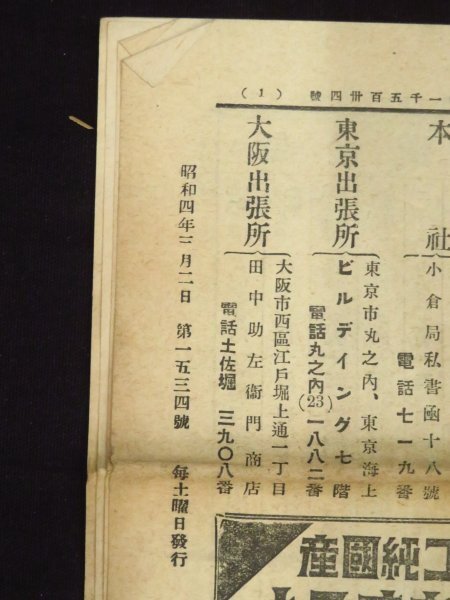 一千五百卅四號
(1)
本社
小倉局私書函十八號
電話七一九番
東京出張所
東京市丸之內、東京海上
ビルデイング七階
電話丸之內(23)一八八二番
大阪出張所
大阪市西區江戶堀上通一丁目
田中助左衞門商店
電話土佐堀 三九〇八番
昭和四年三月二日 第一五三四號 每土曜日發行
純國産